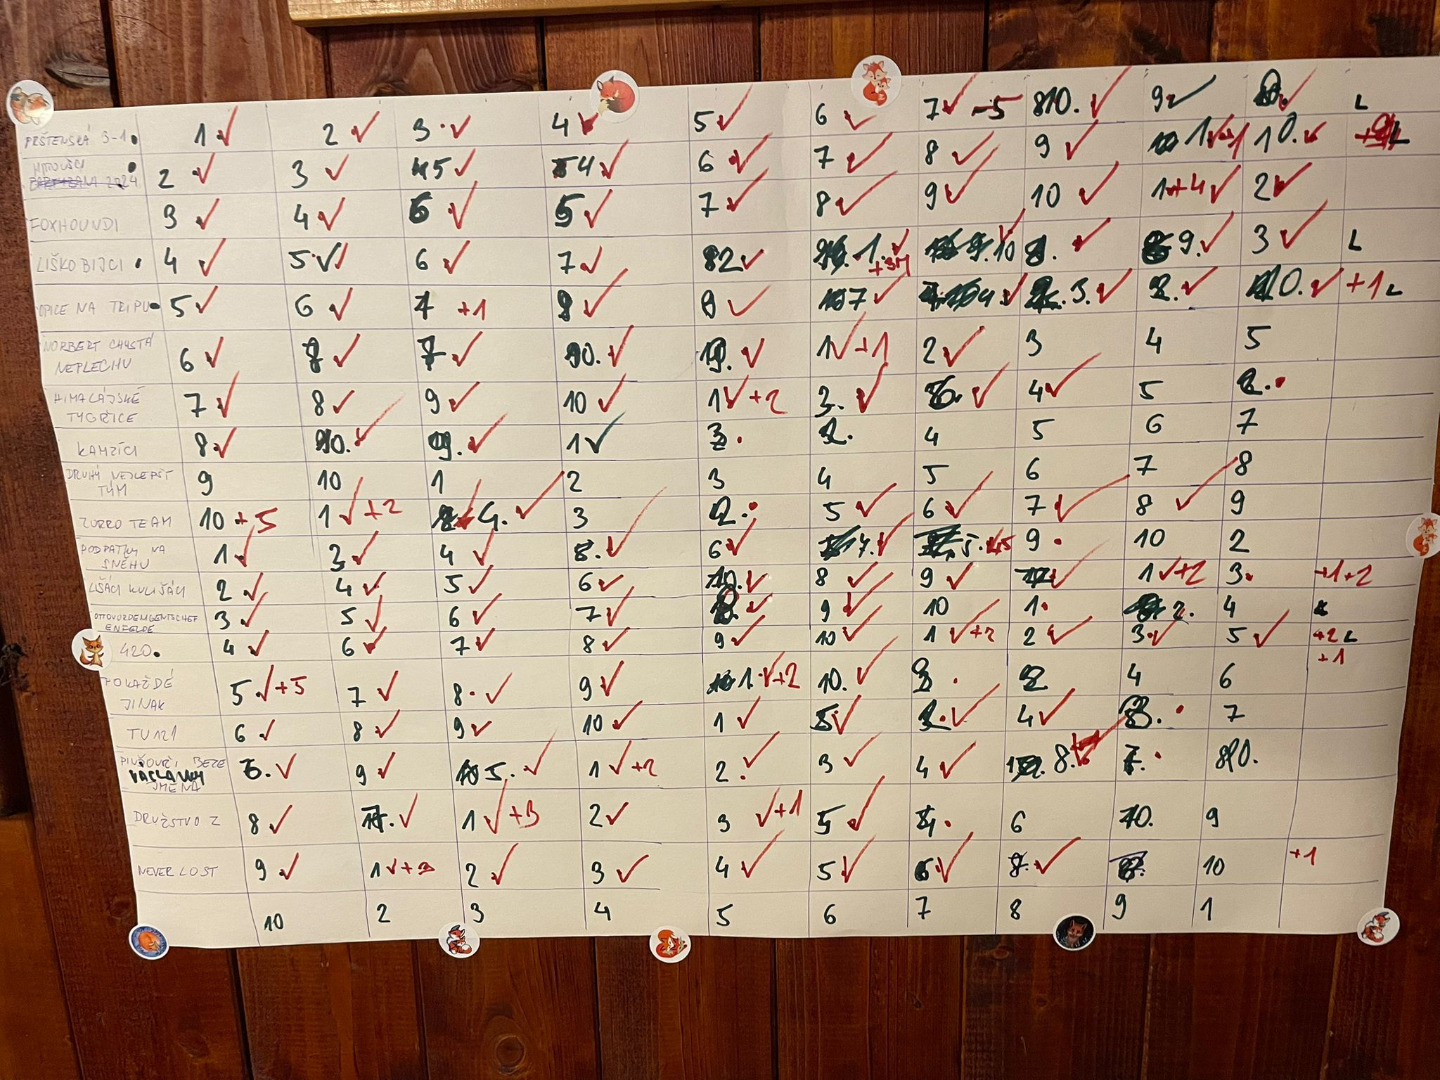 1 2 3. 4 5 6 7 -5 10. 9. L
2 3 5 4 6 7 8 9 1 10. L
FOXHOUNDI 3 4 6 5 7 8 9 10 1+4 2
LIŠKOBIJCI 4 5 6 7 2 1. 10 8. 9. 3 L
OPICE NA TRIPU 5 6 +1 8 9 7 4 3. 2. 10. +1 L
NORBERT CHYSTÁ
NEPLECHU 6 8 7 10. 9. 1 +1 2 3 4 5
HIMALÁJSKÉ
TYGŘICE 7 8 9 10 1 +2 3. 6. 4 5 2.
KAMZÍCI 8 10. 9. 1 3. 2. 4 5 6 7
DRUHÝ NEJLEPŠÍ
TÝM 9 10 1 2 3 4 5 6 7 8
ZORRO TEAM 10 +5 1 +2 4. 3 2. 5 6 7 8 9
PODPATKY NA
SNĚHU 1 3 4 5. 6 7. 5. 9 10 2
LIŠÁCI KULIŠÁCI 2 4 5 6 10. 8 9 7 1 +2 3. +1+2
3 5 6 7 8. 9 10 1 2. 4
420 4 6 7 8 9 10 1 +2 2 3. 5 +2 L
+1
POKAŽDÉ
JINAK 5 +5 7 8. 9 1. +2 10. 3 2 4 6
TU 121 6 8 9 10 1 5 2. 4 3. 7
BEZE
JMÉNA 6. 9 5. 1 +2 2. 3 4 8. 7. 10.
DRUŽSTVO Z 8 7. 1 +3 2 3 +1 5 4. 6 10. 9
NEVER LOST 9 1 2 3 4 5 6 7. 8. 10 +1
10 2 3 4 5 6 7 8 9 1